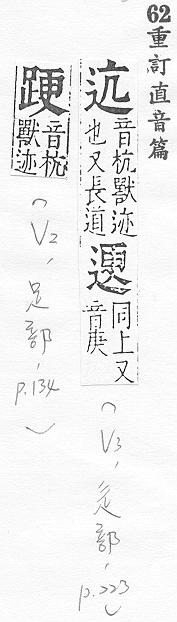 62重訂直音篇
迒 音杭獸迹也又長道 䢚 同上又音庚
(V3, 辵部, p.223)
𨁈 音杭獸迹
(V2, 足部, p.134)